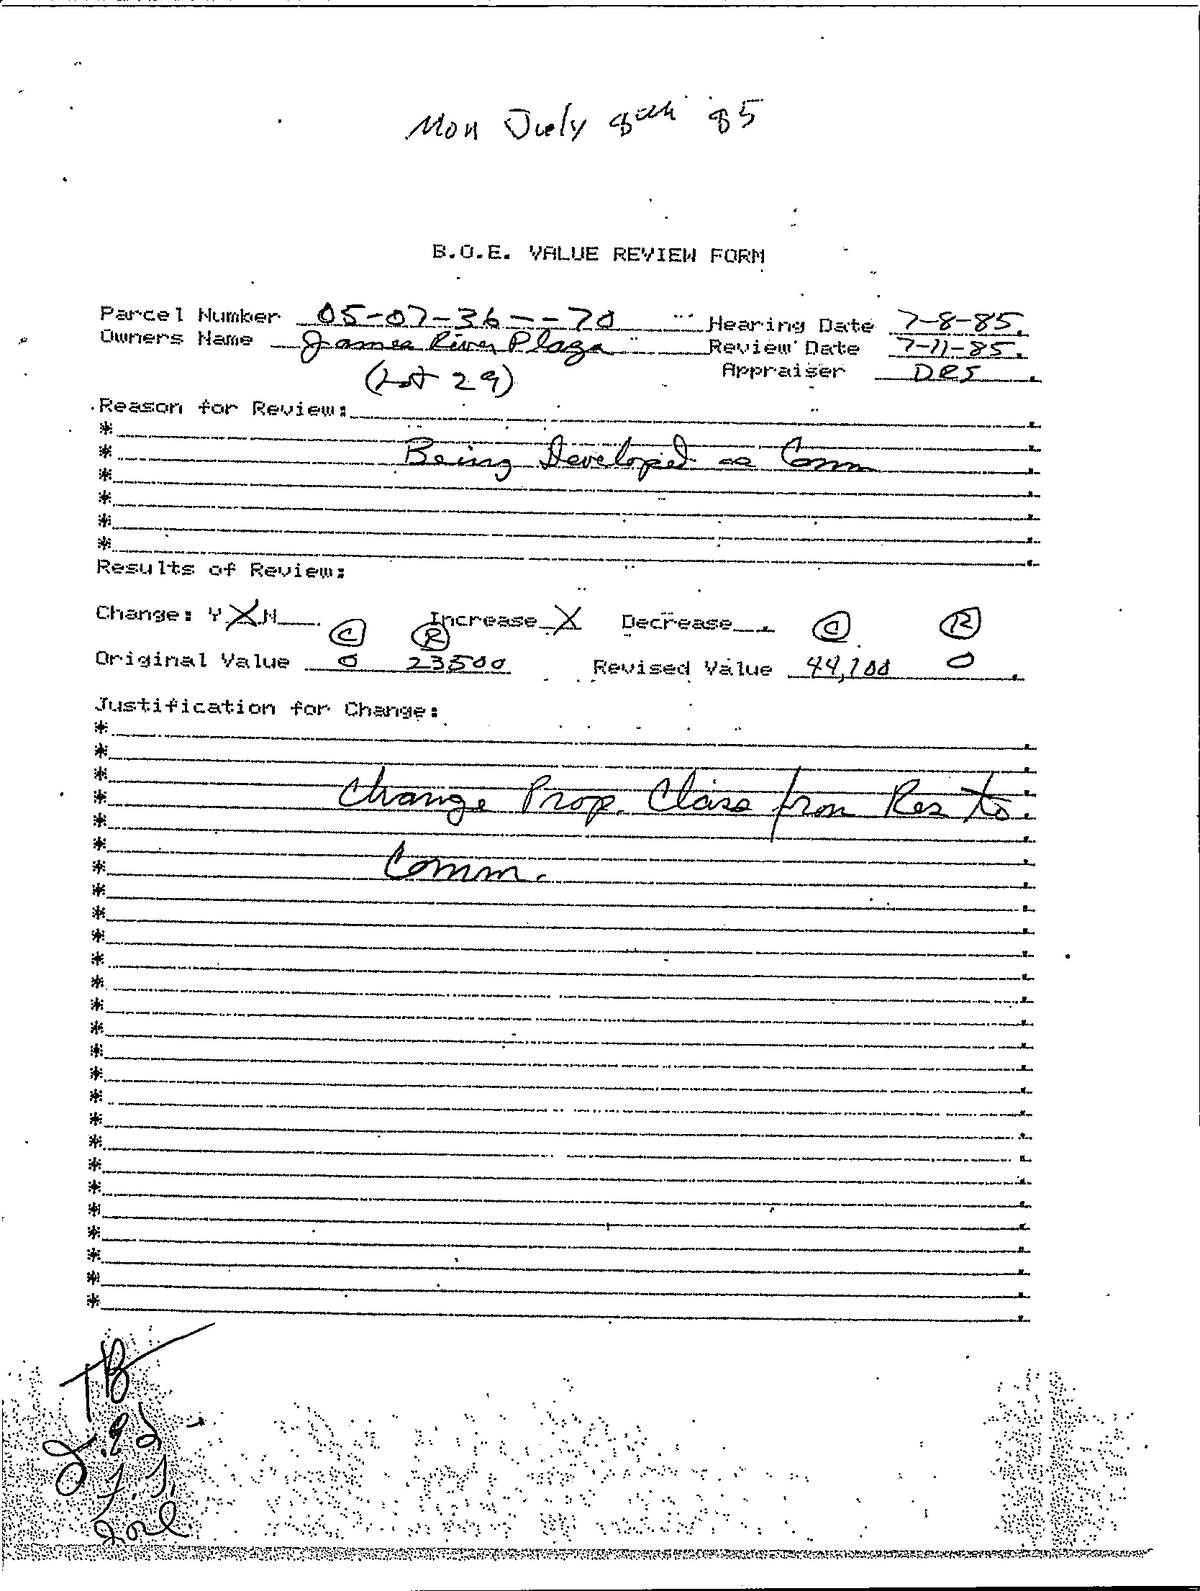 Mon July 8th 85
B.O.E. VALUE REVIEW FORM
Parcel Number 05-07-36---70 Hearing Date 7-8-85.
Owners Name James River Plaza Review Date 7-11-85.
(Lot 29) Appraiser DRS.
Reason for Review:
*
* Being Developed as Comm
*
*
*
*
Results of Review:
Change: Y X N . Increase X Decrease .
C R C R
Original Value 0 23500 Revised Value 44,100 0 .
Justification for Change:
*
*
*
* Change Prop. Class from Res to
*
* Comm.
*
*
*
*
*
*
*
*
*
*
*
*
*
*
*
*
*
*
*
*
TB